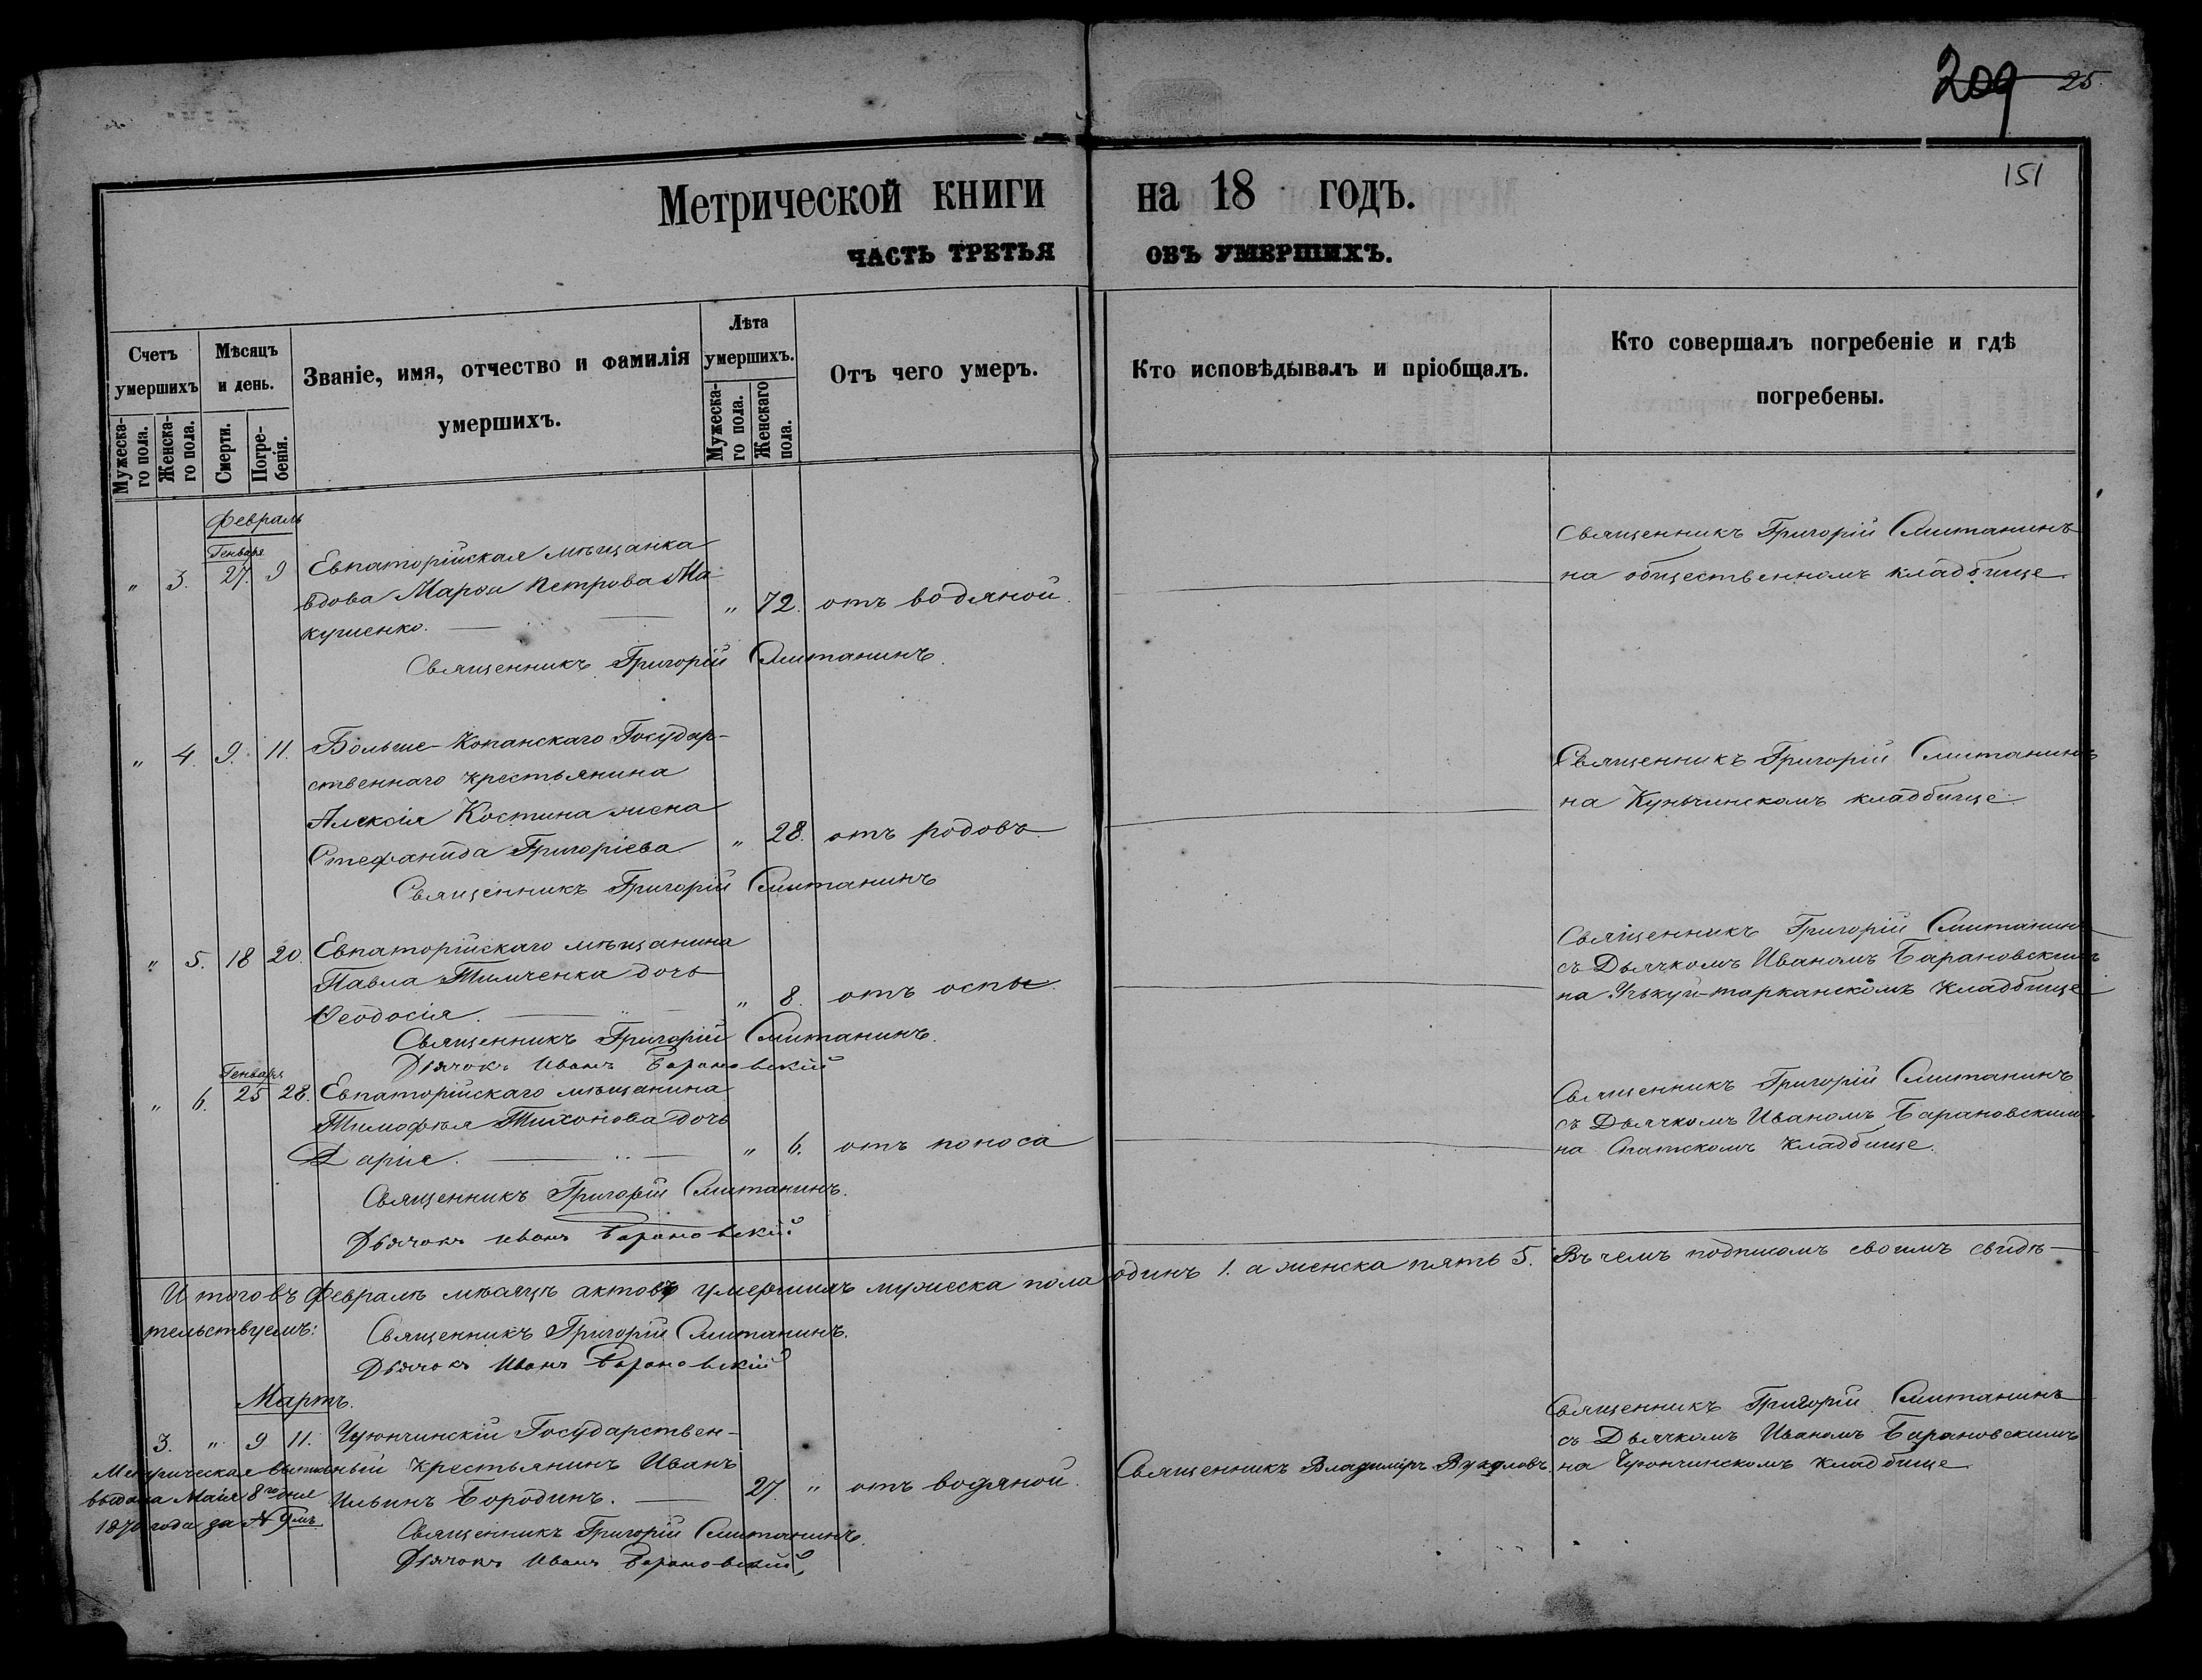 209 25.
151
Метрической книги на 18 годъ.
ЧАСТЬ ТРЕТЬЯ ОБЪ УМЕРШИХЪ.
Счетъ умершихъ
Мужеска-го пола.
Женска-го пола.
Мѣсяцъ и день.
Смерти.
Погре-бенія.
Званіе, имя, отчество и фамилія умершихъ.
Лѣта умершихъ.
Мужеска-го пола.
Женскаго пола.
Отъ чего умеръ.
Кто исповѣдывалъ и пріобщалъ.
Кто совершалъ погребеніе и гдѣ погребены.
Февраль
Генваря
" 3. 27. 9 Евпаторійская мѣщанка
вдова Марѳа Петрова Ма-
кушенко. " 72. отъ водяной.
Священникъ Григорій Смитанинъ
на общественномъ кладбище.
Священникъ Григорій Смитанинъ.
" 4. 9. 11. Больше-Копанскаго Государ-
ственнаго крестьянина
Алексія Костина жена
Стефанида Григоріева " 28. отъ родовъ.
Священникъ Григорій Смитанинъ
на кладбище
Священникъ Григорій Смитанинъ
" 5. 18 20. Евпаторійскаго мѣщанина
Павла Тимченка дочь
Ѳеодосія. " 8. отъ оспы.
Священникъ Григорій Смитанинъ
съ Дьячкомъ Иваномъ Барановскимъ
на кладбище
Священникъ Григорій Смитанинъ.
Дьячокъ Иванъ Барановскій
Генваря
" 6. 25 28. Евпаторійскаго мѣщанина
Тимофея Тихонова дочь
Дарія. " 6. отъ поноса
Священникъ Григорій Смитанинъ
съ Дьячкомъ Иваномъ Барановскимъ
на кладбище.
Священникъ Григорій Смитанинъ.
Дьячокъ Иванъ Барановскій
Итого въ Февралѣ мѣсяцѣ актовъ умершихъ мужеска пола одинъ 1. а женска пять 5. Въ чемъ подписомъ своимъ свидѣ-
тельствуемъ:
Священникъ Григорій Смитанинъ.
Дьячокъ Иванъ Барановскій
Мартъ.
3. " 9 11. Чуюнчинскій Государствен-
ный крестьянинъ Иванъ
Ильинъ Бородинъ. 27. " отъ водяной.
Священникъ Владиміръ
Священникъ Григорій Смитанинъ
съ Дьячкомъ Иваномъ Барановскимъ
на Чуюнчинскомъ кладбище
Метрическая
выдана Маія 8го дня
1870 года за № 9мъ
Священникъ Григорій Смитанинъ.
Дьячокъ Иванъ Барановскій